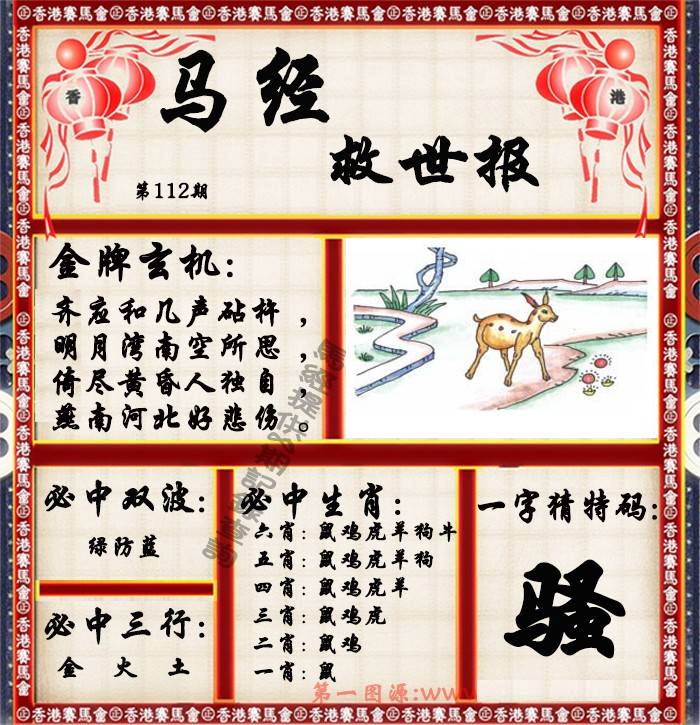 香港賽馬會
香 港
马经
救世报
第112期
金牌玄机：
齐应和几声砧杵，
明月湾南空所思，
倚尽黄昏人独自，
燕南河北好悲伤。
必中双波：
绿防蓝
必中三行：
金 火 土
必中生肖：
六肖：鼠鸡虎羊狗牛
五肖：鼠鸡虎羊狗
四肖：鼠鸡虎羊
三肖：鼠鸡虎
二肖：鼠鸡
一肖：鼠
一字猜特码：
骚
第一图源:www